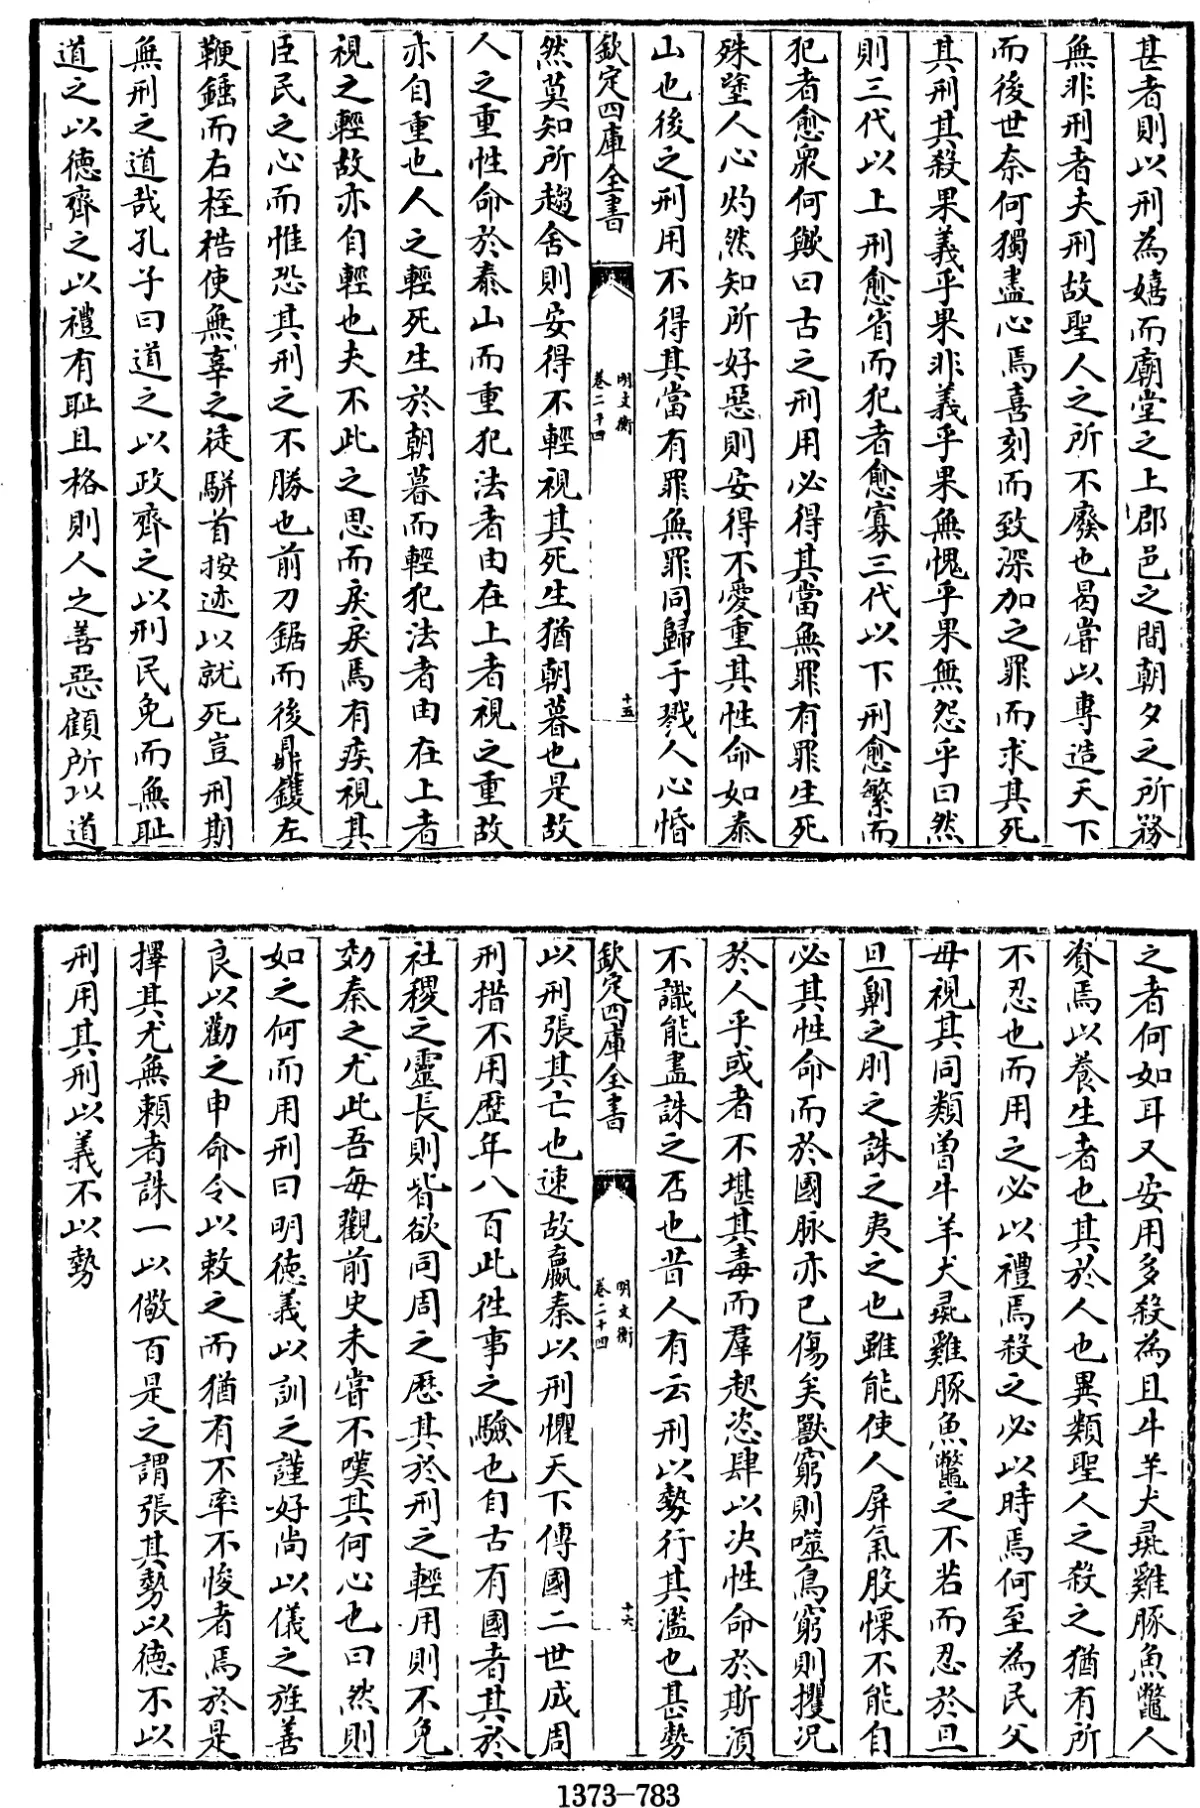 甚者則以刑為嬉而廟堂之上郡邑之間朝夕之所務
無非刑者夫刑故聖人之所不廢也曷嘗以專造天下
而後世奈何獨盡心焉喜刻而致深加之罪而求其死
其刑其殺果義乎果非義乎果無愧乎果無怨乎曰然
則三代以上刑愈省而犯者愈寡三代以下刑愈繁而
犯者愈衆何歟曰古之刑用必得其當無罪有罪生死
殊塗人心灼然知所好惡則安得不愛重其性命如泰
山也後之刑用不得其當有罪無罪同歸于戮人心惛
欽定四庫全書
明文衡
卷二十四
十五
然莫知所趨舍則安得不輕視其死生猶朝暮也是故
人之重性命於泰山而重犯法者由在上者視之重故
亦自重也人之輕死生於朝暮而輕犯法者由在上者
視之輕故亦自輕也夫不此之思而戾戾焉有疾視其
臣民之心而惟恐其刑之不勝也前刀鋸而後鼎鑊左
鞭錘而右桎梏使無辜之徒駢首按迹以就死豈刑期
無刑之道哉孔子曰道之以政齊之以刑民免而無耻
道之以德齊之以禮有耻且格則人之善惡顧所以道
之者何如耳又安用多殺為且牛羊犬彘雞豚魚鼈人
資焉以養生者也其於人也異類聖人之殺之猶有所
不忍也而用之必以禮焉殺之必以時焉何至為民父
母視其同類曾牛羊犬彘雞豚魚鼈之不若而忍於旦
旦劓之刖之誅之夷之也雖能使人屏氣股慄不能自
必其性命而於國脉亦已傷矣獸窮則噬鳥窮則攫况
於人乎或者不堪其毒而羣起恣肆以决性命於斯湏
不識能盡誅之否也昔人有云刑以勢行其濫也甚勢
欽定四庫全書
明文衡
卷二十四
十六
以刑張其亡也速故嬴秦以刑懼天下傳國二世成周
刑措不用歴年八百此徃事之驗也自古有國者其於
社稷之靈長則皆欲同周之歴其於刑之輕用則不免
効秦之尤此吾每觀前史未嘗不嘆其何心也曰然則
如之何而用刑曰明徳義以訓之謹好尚以儀之旌善
良以勸之申命令以敕之而猶有不率不悛者焉於是
擇其尤無賴者誅一以儆百是之謂張其勢以德不以
刑用其刑以義不以勢
1373-783